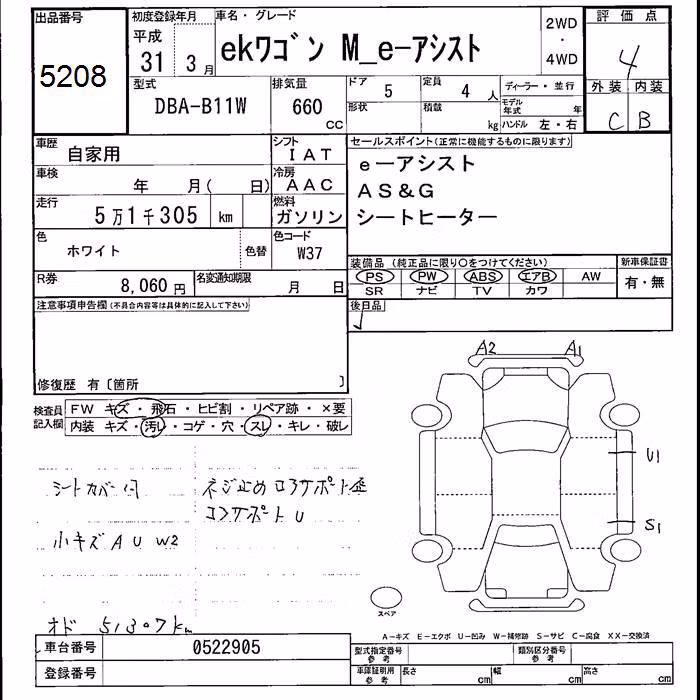 出品番号
5208
初度登録年月
平成
31 3月
車名・グレード
ekワゴン M_e-アシスト
2WD
・
4WD
評価点
4
外装 内装
C B
型式
DBA-B11W
排気量
660
cc
ドア
5
定員
4 人
形状
積載
kg
ディーラー・並行
モデル年式 年
ハンドル 左・右
車歴
自家用
シフト
IAT
車検
年 月( 日)
冷房
AAC
走行
5万1千305 km
燃料
ガソリン
色
ホワイト
色替
色コード
W37
R券
8,060 円
名変通知期限
月 日
セールスポイント(正常に機能するものに限ります)
e-アシスト
AS&G
シートヒーター
装備品 (純正品に限り○をつけてください)
PS PW ABS エアB AW
SR ナビ TV カワ
新車保証書
有・無
後日品
注意事項申告欄(不具合内容等は具体的に記入して下さい)
修復歴 有〔箇所 〕
検査員記入欄
FW キズ・飛石・ヒビ割・リペア跡・×要
内装 キズ・汚し・コゲ・穴・スレ・キレ・破し
シートカバー付
ネジ止め コアサポート歪
コアサポートU
小キズ A U W2
オド 51307km
A2 A1
U1
S1
スペア
A-キズ E-エクボ U-凹み W-補修跡 S-サビ C-腐食 XX-交換済
車台番号 0522905
登録番号
型式指定番号 参考
類別区分番号 参考
車庫証明用 参考
長さ cm
幅 cm
高さ cm